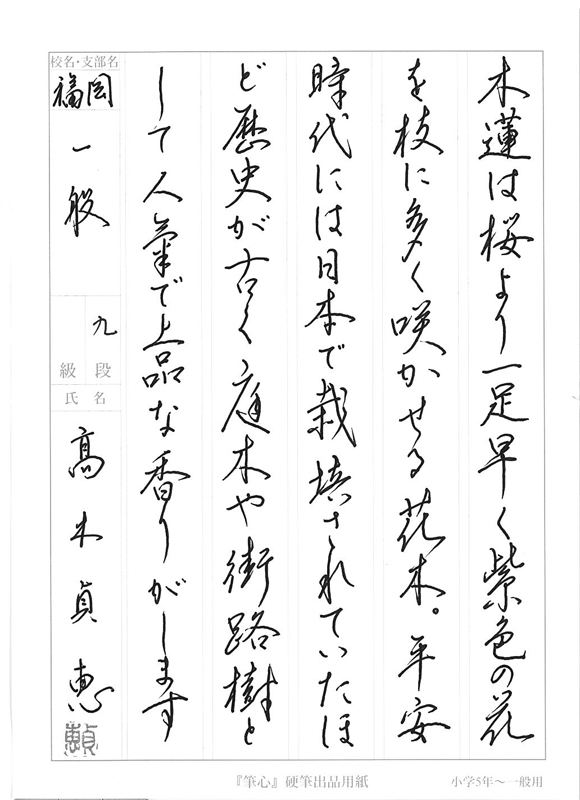 木蓮は桜より一足早く紫色の花
を枝に多く咲かせる花木。平安
時代には日本で栽培されていたほ
ど歴史が古く、庭木や街路樹と
して人氣で上品な香りがします
校名・支部名
福岡
一般
九
級 段
氏 名
高木貞恵
『筆心』硬筆出品用紙
小学5年〜一般用